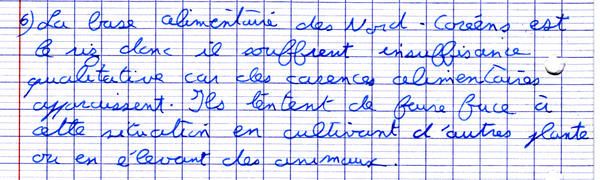 6) La base alimentaire des Nord-Coréens est
le riz donc il souffrent insuffisance
qualitative car des carences alimentaires
apparaissent. Ils tentent de faire face à
cette situation en cultivant d'autres plante
ou en élevant des animaux.